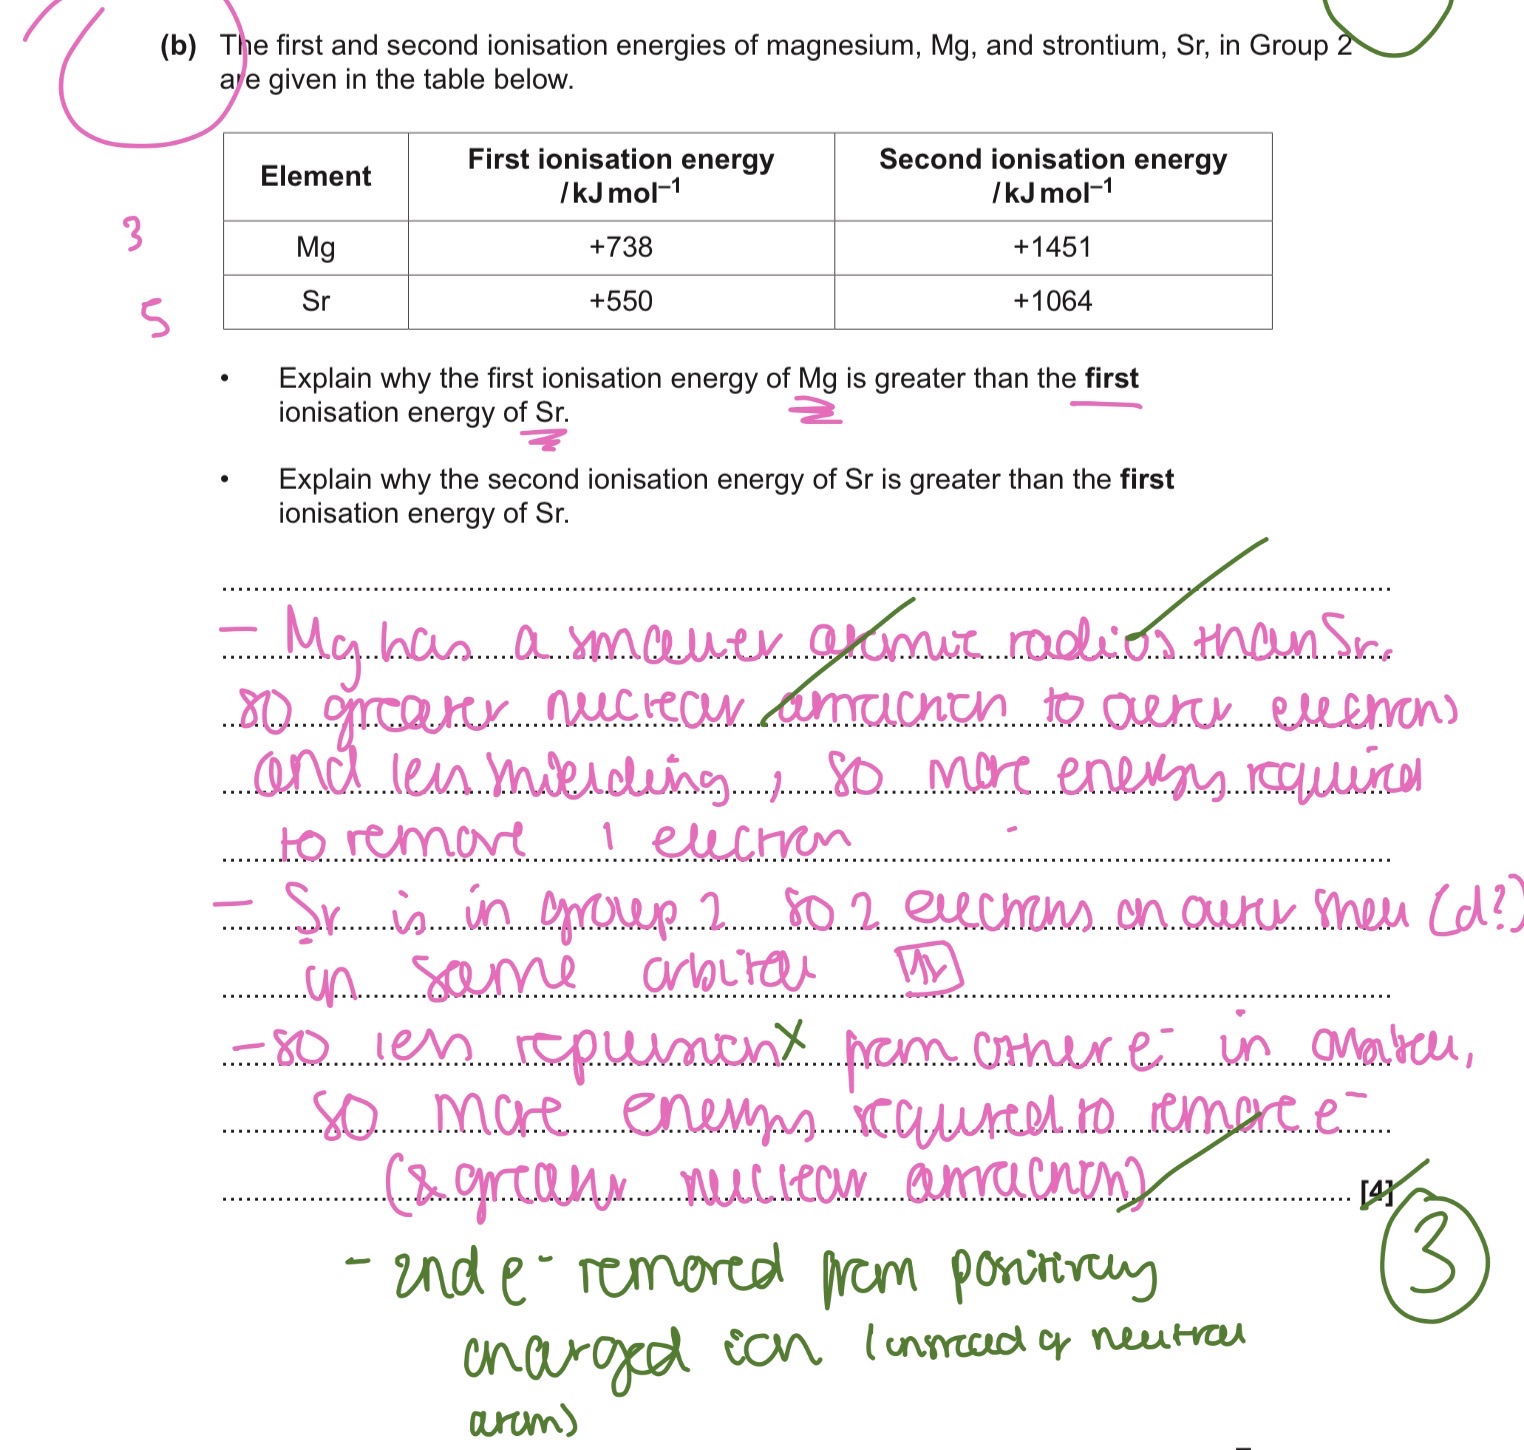 (b) The first and second ionisation energies of magnesium, Mg, and strontium, Sr, in Group 2
are given in the table below.
Element First ionisation energy /kJ mol⁻¹ Second ionisation energy /kJ mol⁻¹
3 Mg +738 +1451
5 Sr +550 +1064
• Explain why the first ionisation energy of Mg is greater than the first
ionisation energy of Sr.
• Explain why the second ionisation energy of Sr is greater than the first
ionisation energy of Sr.
– Mg has a smaller atomic radius than Sr.
so greater nuclear attraction to outer electrons
and less shielding, so more energy required
to remove 1 electron
– Sr is in group 2 so 2 electrons on outer shell (d?)
in same orbital ↑↓
– so less repulsion x from other e⁻ in orbital,
so more energy required to remove e⁻
(& greater nuclear attraction)
[4]
3
– 2nd e⁻ removed from positively
charged ion (instead of neutral
atom)